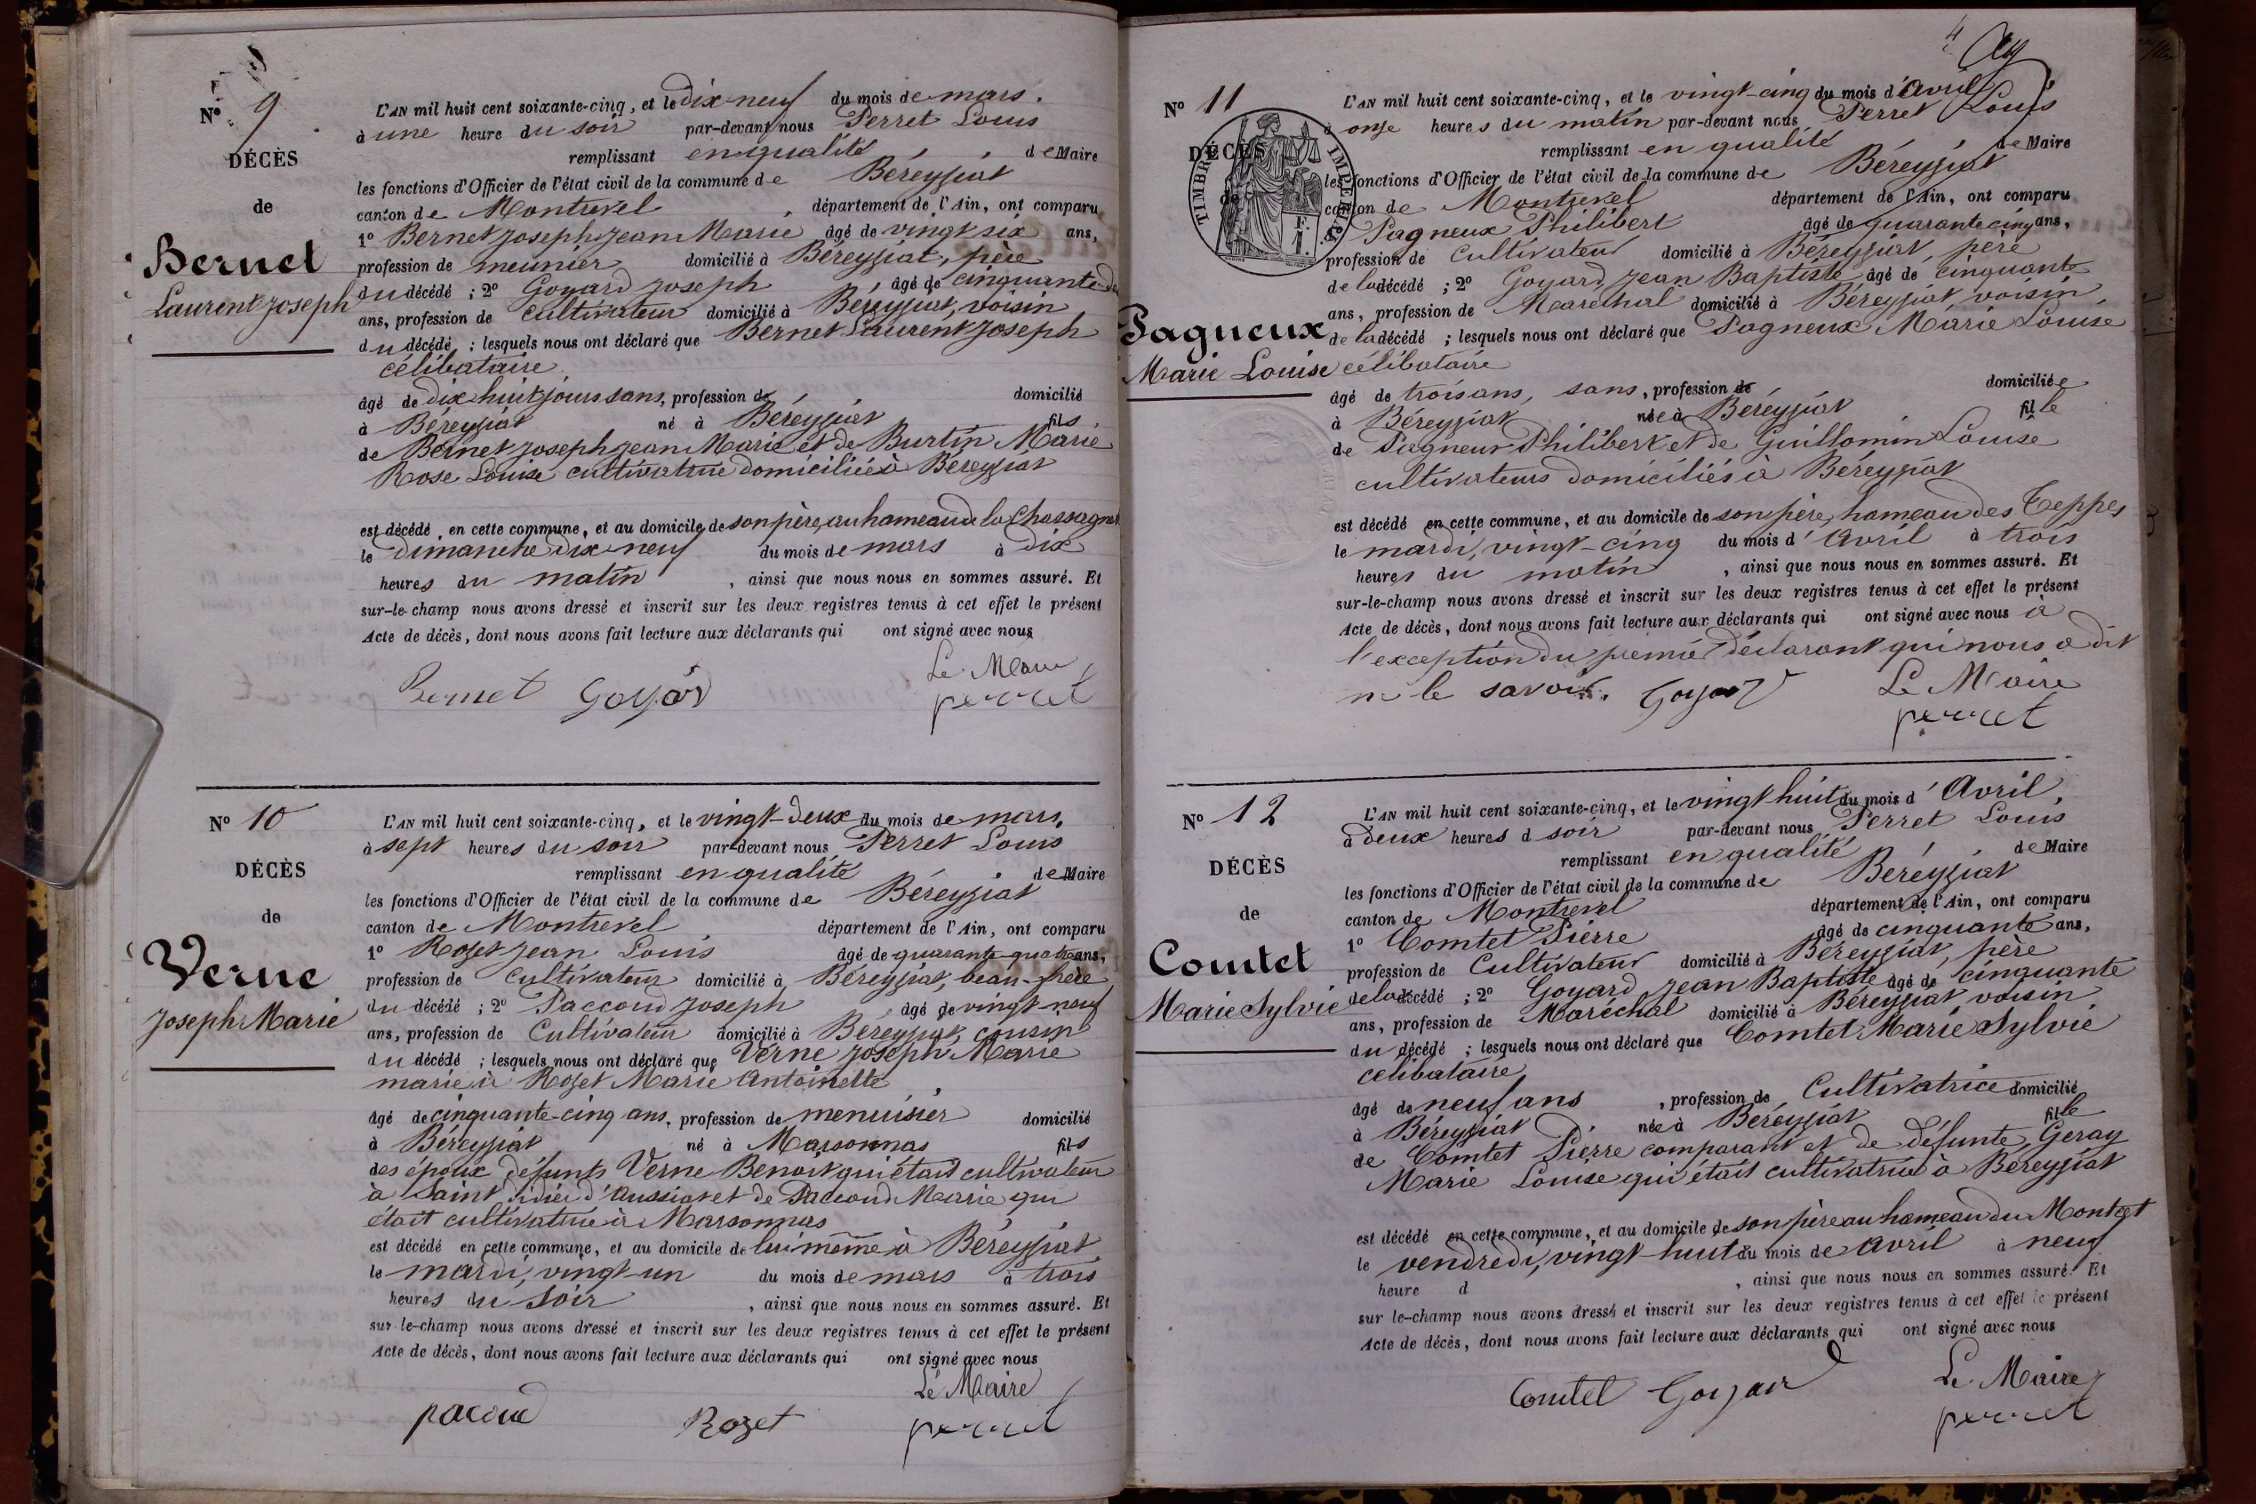 N° 9
DÉCÈS
de
Bernet
Laurent Joseph
L'AN mil huit cent soixante-cinq, et le dix neuf du mois de mars.
à une heure du soir par-devant nous Perret Louis
remplissant en qualité de Maire
les fonctions d'Officier de l'état civil de la commune de Béreyziat
canton de Montrevel département de l'Ain, ont comparu
1° Bernet Joseph Jean Marie âgé de vingt six ans,
profession de meunier domicilié à Béreyziat, père
du décédé ; 2° Goyard Joseph âgé de cinquante
ans, profession de cultivateur domicilié à Béreyziat, voisin
du décédé ; lesquels nous ont déclaré que Bernet Laurent Joseph
célibataire
âgé de dix huit jours sans, profession de domicilié
à Béreyziat né à Béreyziat fils
de Bernet Joseph Jean Marie et de Burtin Marie
Rose Louise cultivatrice domiciliée à Béreyziat
est décédé en cette commune, et au domicile de son père, au hameau de la Chassagne
le dimanche dix neuf du mois de mars à dix
heures du matin, ainsi que nous nous en sommes assuré. Et
sur-le-champ nous avons dressé et inscrit sur les deux registres tenus à cet effet le présent
Acte de décès, dont nous avons fait lecture aux déclarants qui ont signé avec nous
Le Maire
Bernet Goyard perret
N° 10
DÉCÈS
de
Verne
Joseph Marie
L'AN mil huit cent soixante-cinq, et le vingt-deux du mois de mars,
à sept heures du soir par-devant nous Perret Louis
remplissant en qualité de Maire
les fonctions d'Officier de l'état civil de la commune de Béreyziat
canton de Montrevel département de l'Ain, ont comparu
1° Rozet Jean Louis âgé de quarante-quatre ans,
profession de Cultivateur domicilié à Béreyziat, beau-frère
du décédé ; 2° Paccoud Joseph âgé de vingt-neuf
ans, profession de Cultivateur domicilié à Béreyziat, cousin
du décédé ; lesquels nous ont déclaré que Verne Joseph Marie
marié à Rozet Marie Antoinette
âgé de cinquante-cinq ans, profession de menuisier domicilié
à Béreyziat né à Marsonnas fils
des époux défunts Verne Benoit qui était cultivateur
à Saint Didier d'Aussiat et de Paccoud Marie qui
était cultivatrice à Marsonnas
est décédé en cette commune, et au domicile de lui même à Béreyziat,
le mardi, vingt-un du mois de mars à trois
heures du soir, ainsi que nous nous en sommes assuré. Et
sur-le-champ nous avons dressé et inscrit sur les deux registres tenus à cet effet le présent
Acte de décès, dont nous avons fait lecture aux déclarants qui ont signé avec nous
Le Maire
pacoud Rozet perret
4
N° 11
DÉCÈS
de
TIMBRE IMPERIAL
Pagneux
Marie Louise
L'AN mil huit cent soixante-cinq, et le vingt-cinq du mois d'Avril
à onze heures du matin par-devant nous Perret Louis
remplissant en qualité de Maire
les fonctions d'Officier de l'état civil de la commune de Béreyziat
canton de Montrevel département de l'Ain, ont comparu
Pagneux Philibert âgé de quarante cinq ans,
profession de Cultivateur domicilié à Béreyziat, père
de la décédé ; 2° Goyard Jean Baptiste âgé de cinquante
ans, profession de Maréchal domicilié à Béreyziat voisin,
de la décédé ; lesquels nous ont déclaré que Pagneux Marie Louise
célibataire
âgé de trois ans, sans, profession de domiciliée
à Béreyziat née à Béreyziat fille
de Pagneux Philibert et de Guillomin Louise
cultivateurs domiciliés à Béreyziat
est décédé en cette commune, et au domicile de son père, hameau des Teppes
le mardi, vingt-cinq du mois d'Avril à trois
heures du matin, ainsi que nous nous en sommes assuré. Et
sur-le-champ nous avons dressé et inscrit sur les deux registres tenus à cet effet le présent
Acte de décès, dont nous avons fait lecture aux déclarants qui ont signé avec nous à
l'exception du premier déclarant qui nous a dit
ne le savoir. Goyard Le Maire
perret
N° 12
DÉCÈS
de
Comtet
Marie Sylvie
L'AN mil huit cent soixante-cinq, et le vingt huit du mois d'Avril,
à deux heures d soir par-devant nous Perret Louis
remplissant en qualité de Maire
les fonctions d'Officier de l'état civil de la commune de Béreyziat
canton de Montrevel département de l'Ain, ont comparu
1° Comtet Pierre âgé de cinquante ans,
profession de Cultivateur domicilié à Béreyziat, père
de la décédé ; 2° Goyard Jean Baptiste âgé de cinquante
ans, profession de Maréchal domicilié à Béreyziat voisin
du décédé ; lesquels nous ont déclaré que Comtet Marie Sylvie
célibataire,
âgé de neuf ans, profession de Cultivatrice domicilié
à Béreyziat née à Béreyziat fille
de Comtet Pierre comparant et de défunte Geray
Marie Louise qui était cultivatrice à Béreyziat
est décédé en cette commune, et au domicile de son père au hameau du Montat
le vendredi, vingt-huit du mois de avril à neuf
heure d, ainsi que nous nous en sommes assuré. Et
sur le-champ nous avons dressé et inscrit sur les deux registres tenus à cet effet le présent
Acte de décès, dont nous avons fait lecture aux déclarants qui ont signé avec nous
Le Maire
Comtet Goyard perret